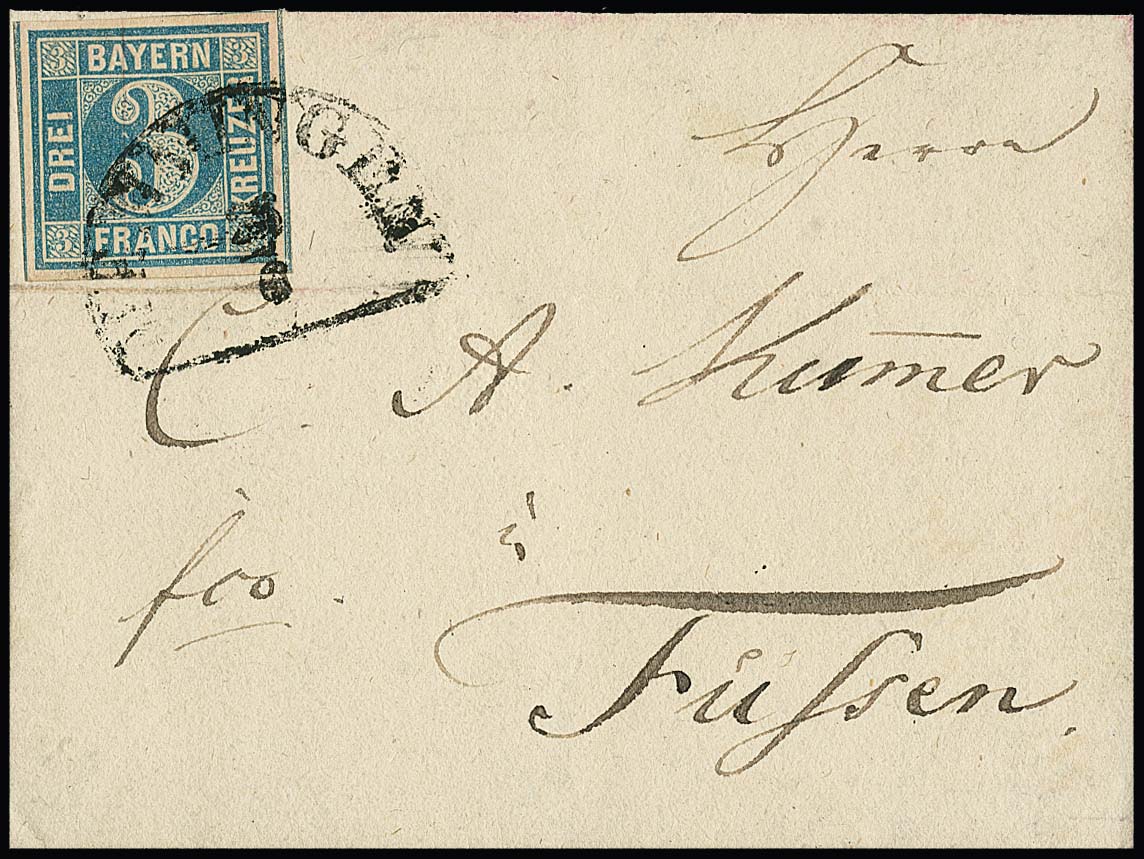 3 BAYERN 3
DREI 3 KREUZER
3 FRANCO
Herrn
C. A. Kum̄er
fco.
in
Füssen.